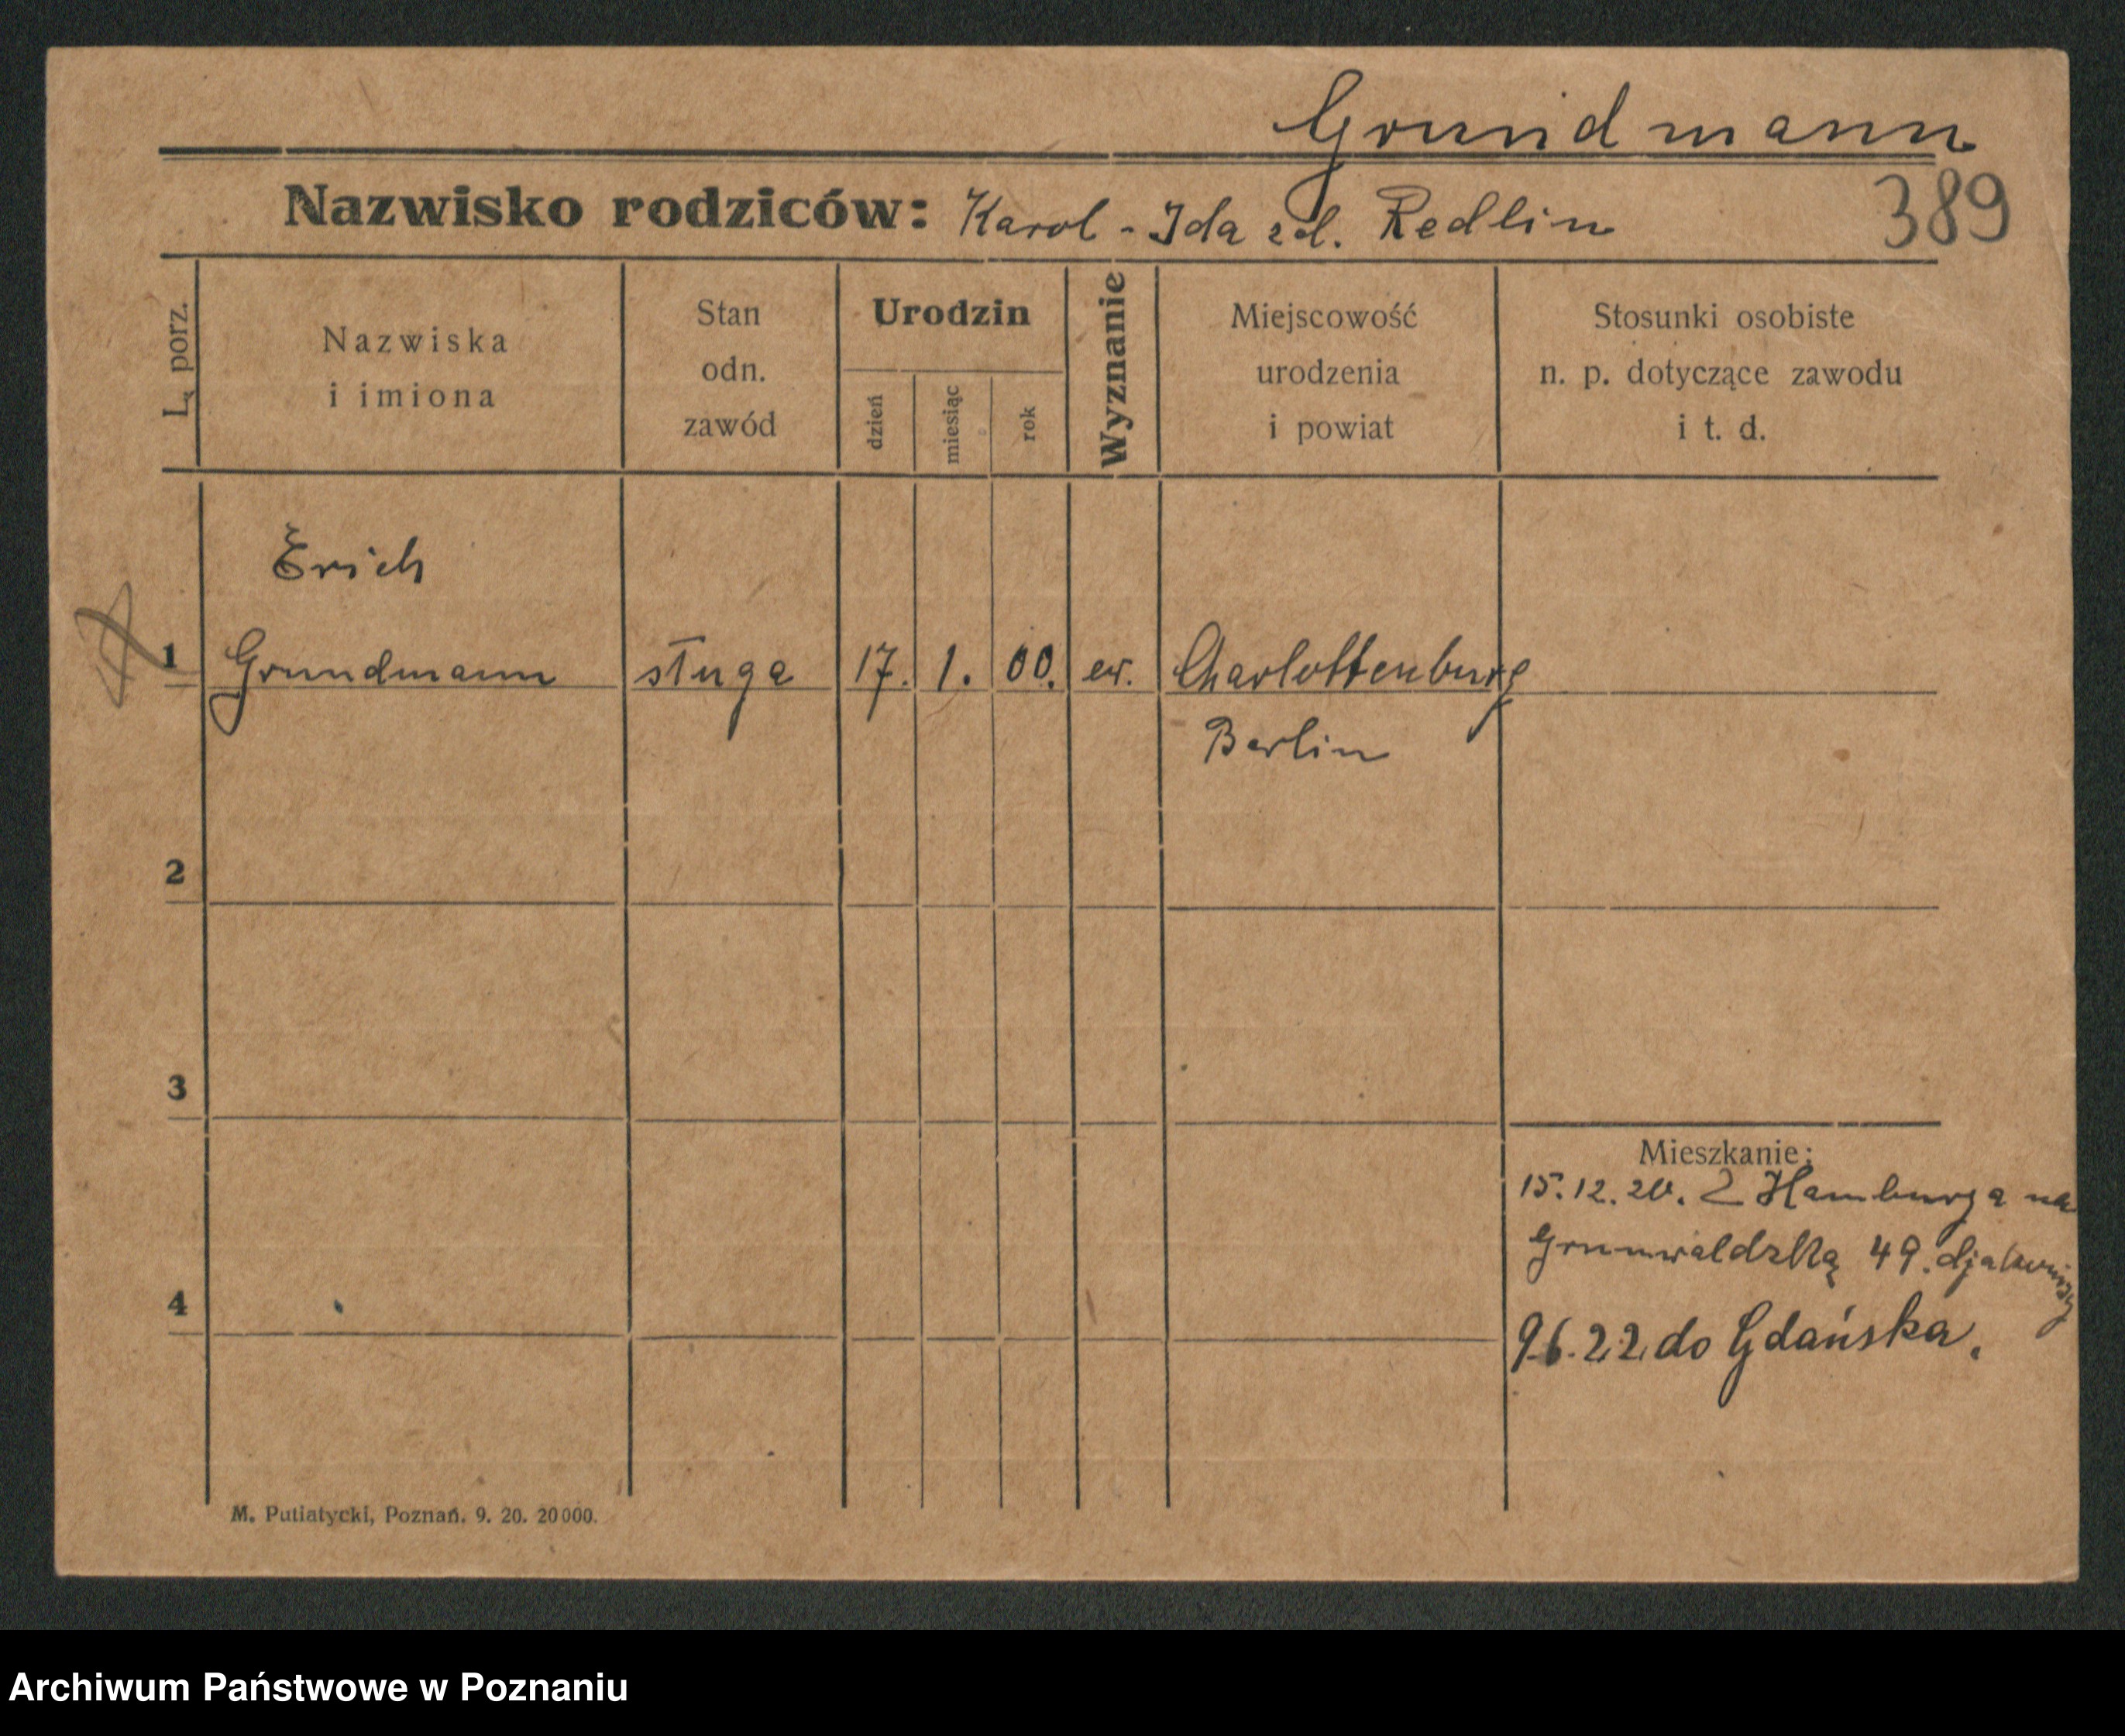 Grundmann
Nazwisko rodziców: Karol - Ida zd. Redlin
389
L. porz.
Nazwiska
i imiona
Stan
odn.
zawód
Urodzin
dzień
miesiąc
rok
Wyznanie
Miejscowość
urodzenia
i powiat
Stosunki osobiste
n. p. dotyczące zawodu
i t. d.
Erich
1 Grundmann sługa 17. 1. 00. ew. Charlottenburg
Berlin
2
3
Mieszkanie:
15.12.20. Z Hamburga na
Grunwaldzką 49.
4
9.6.22. do Gdańska.
M. Putiatycki, Poznań. 9. 20. 20000.
Archiwum Państwowe w Poznaniu